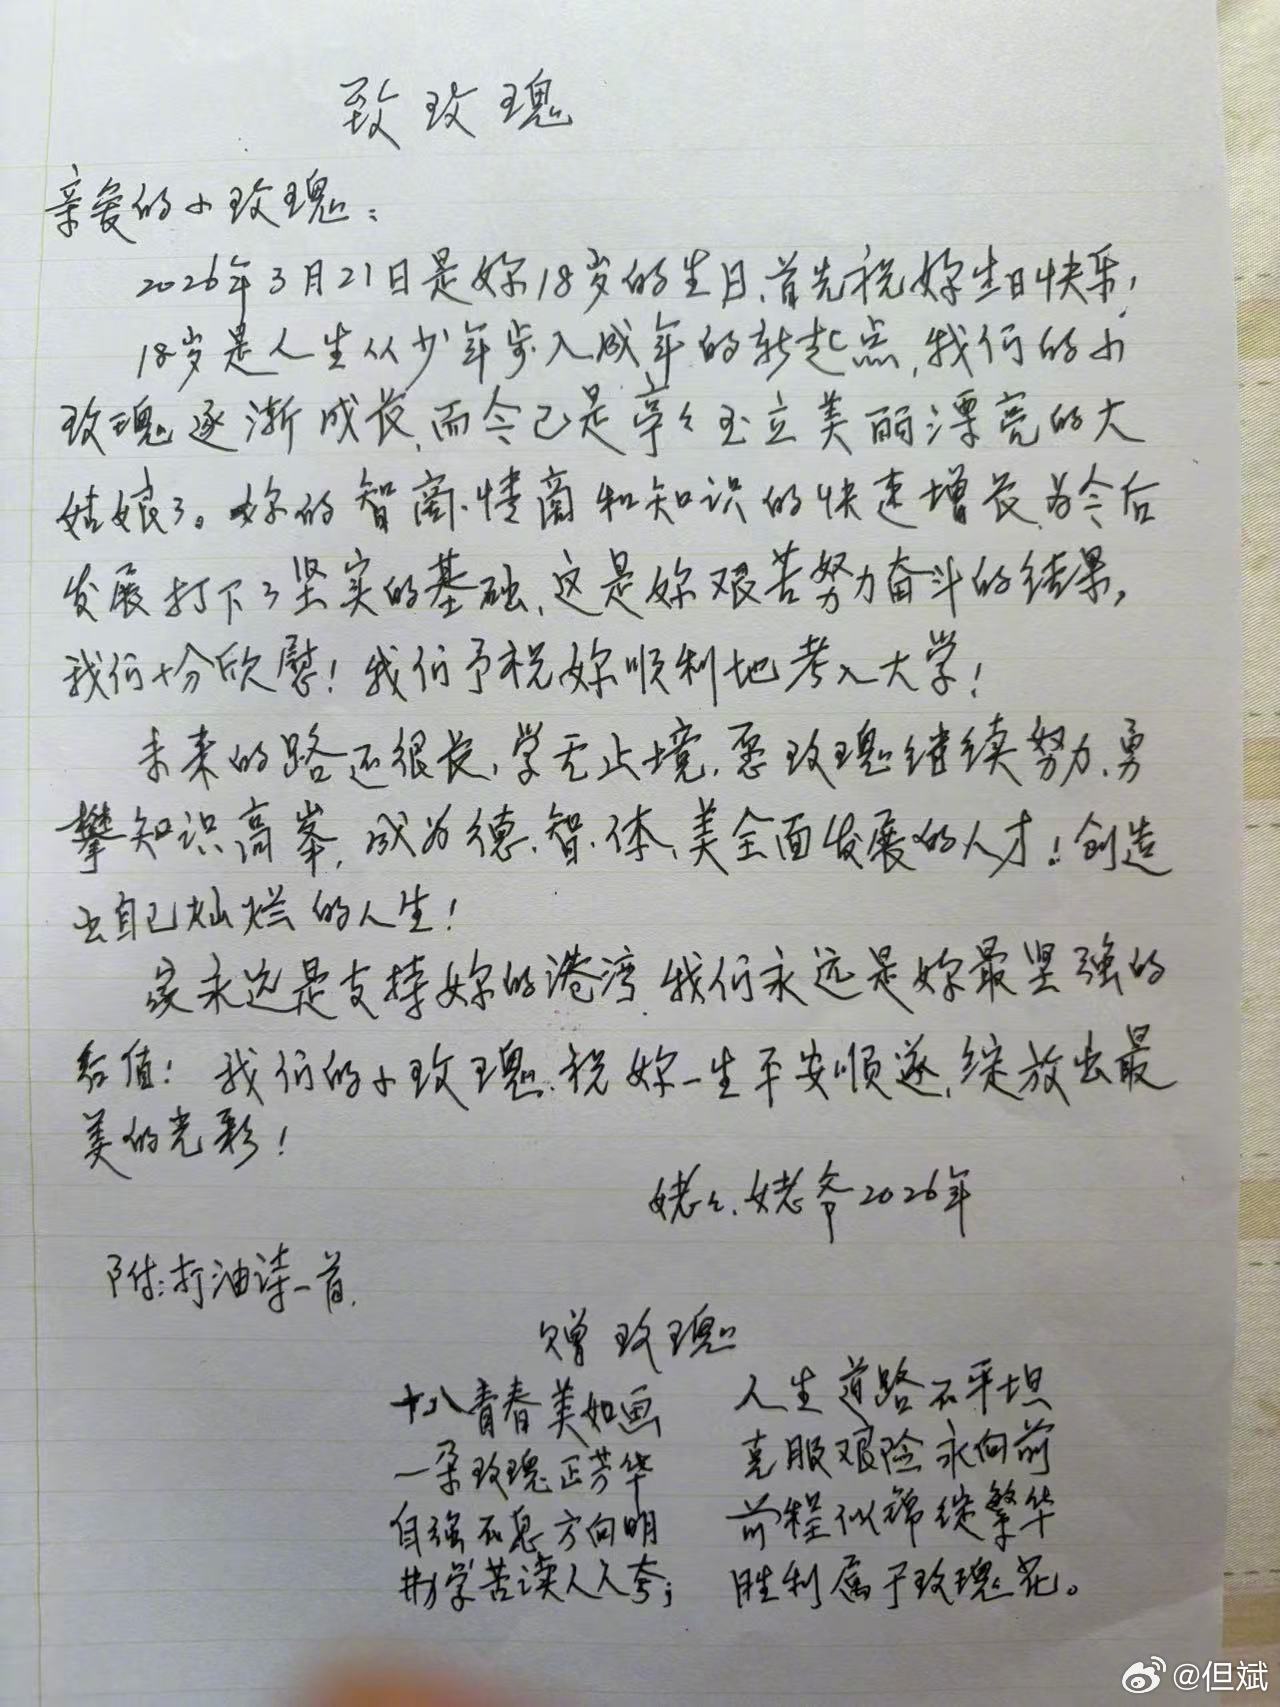 致玫瑰
亲爱的小玫瑰：
2026年3月21日是妳18岁的生日、首先祝妳生日快乐，
18岁是人生从少年步入成年的新起点，我们的小
玫瑰逐渐成长，而今已是亭々玉立美丽漂亮的大
姑娘了。妳的智商、情商和知识的快速增长，为今后
发展打下了坚实的基础、这是妳艰苦努力奋斗的结果，
我们十分欣慰！我们予祝妳顺利地考入大学！
未来的路还很长，学无止境，愿玫瑰继续努力、勇
攀知识高峯，成为德、智、体、美全面发展的人才！创造
出自己灿烂的人生！
家永远是支持妳的港湾，我们永远是妳最坚强的
后盾！我们的小玫瑰、祝妳一生平安顺遂，绽放出最
美的光彩！
姥々、姥爷2026年
附：打油诗一首，
赠玫瑰
十八青春美如画 人生道路不平坦
一朵玫瑰正芳华 克服艰险永向前
自强不息方向明 前程似锦绽繁华
勤学苦读人人夸； 胜利属于玫瑰花。
@但斌